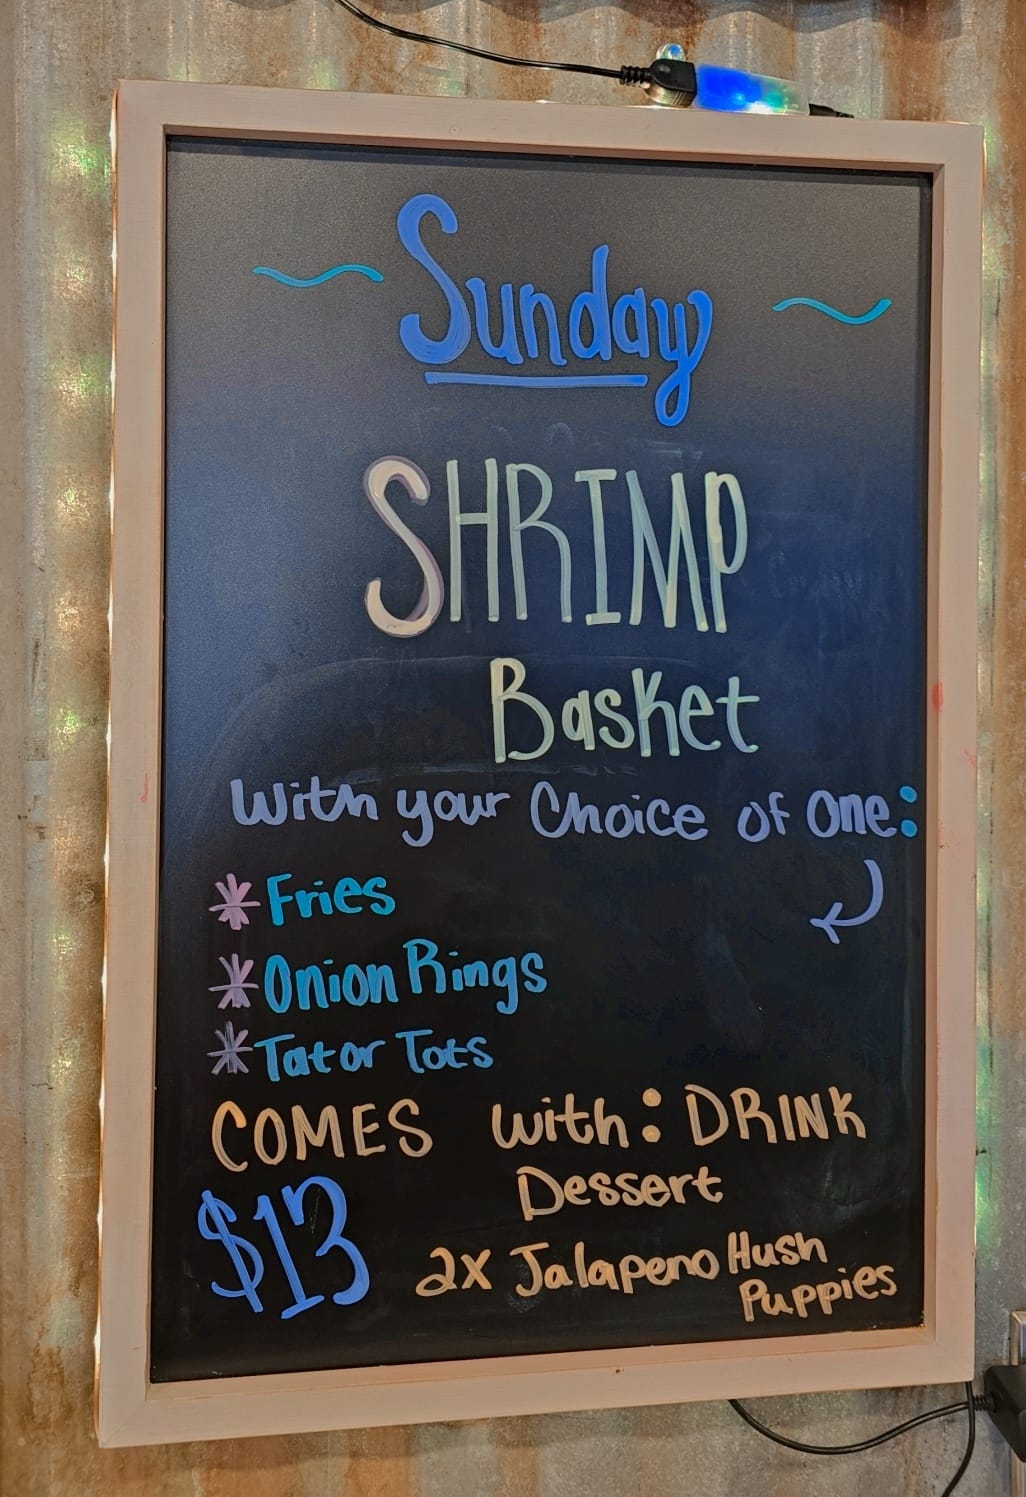 Sunday
SHRIMP
Basket
With your Choice of One:
* Fries
* Onion Rings
* Tator Tots
COMES with: DRINK
Dessert
$13
2x Jalapeno Hush
Puppies